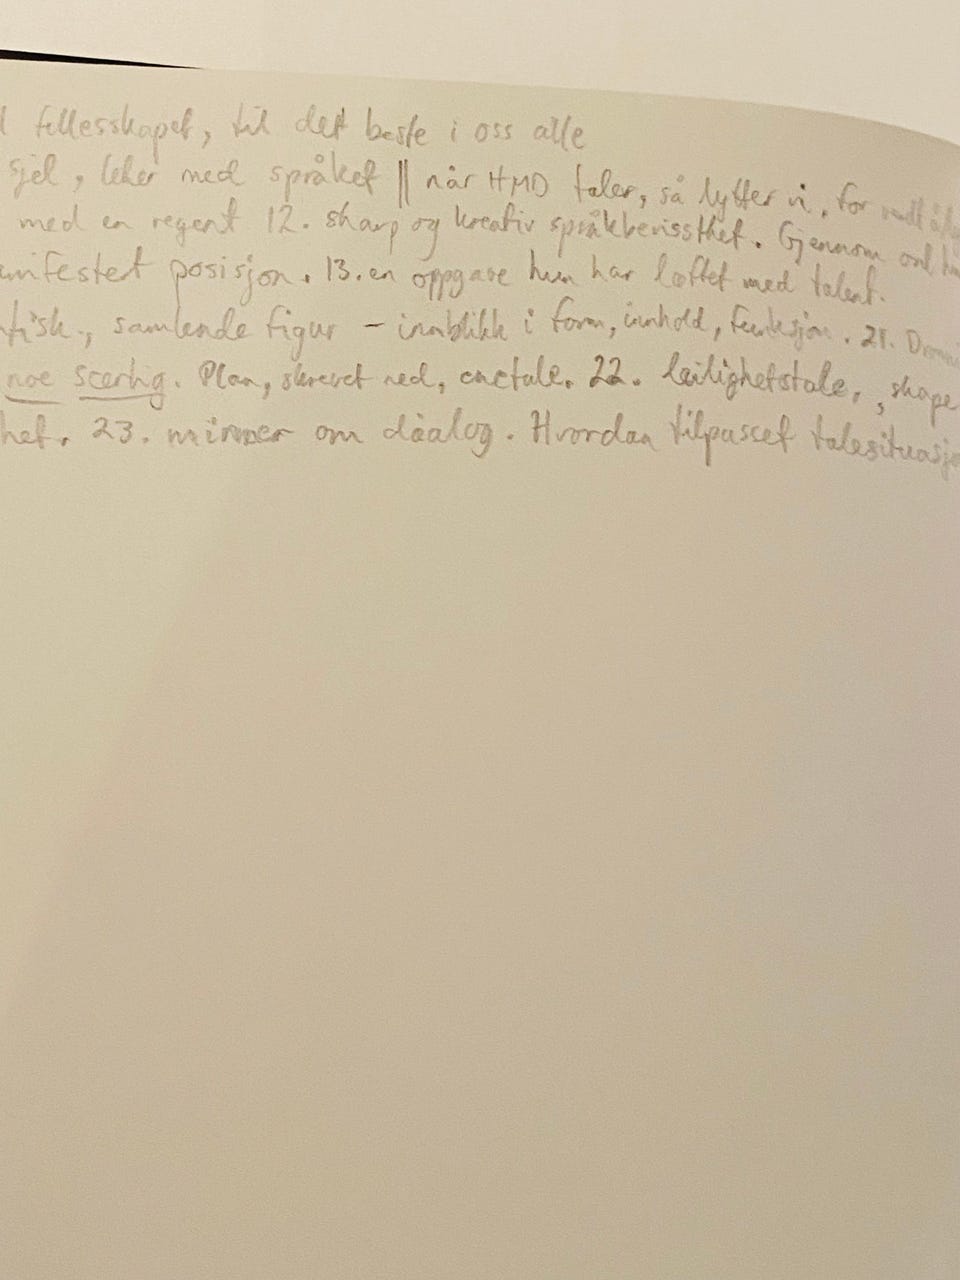 fellesskapet, til det beste i oss alle
sjel, leker med språket || når HMD taler, så lytter vi, for
med en regent 12. skarp og kreativ språkbevissthet. Gjennom ord
manifestet posisjon. 13. en oppgave hun har løftet med talent.
samlende figur – innblikk i form, innhold, funksjon. 21.
noe særlig. Plan, skrevet ned, enetale. 22. leilighetstale,
het. 23. minner om dialog. Hvordan tilpasset talesituasjo